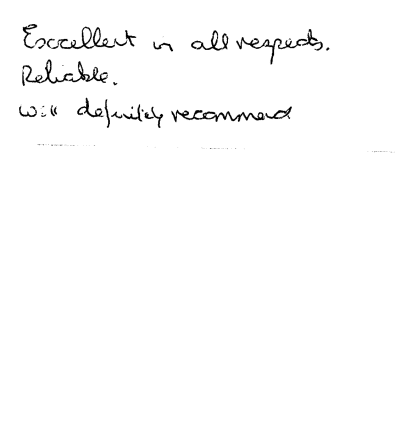 Excellent in all respects.
Reliable.
Will definitely recommend